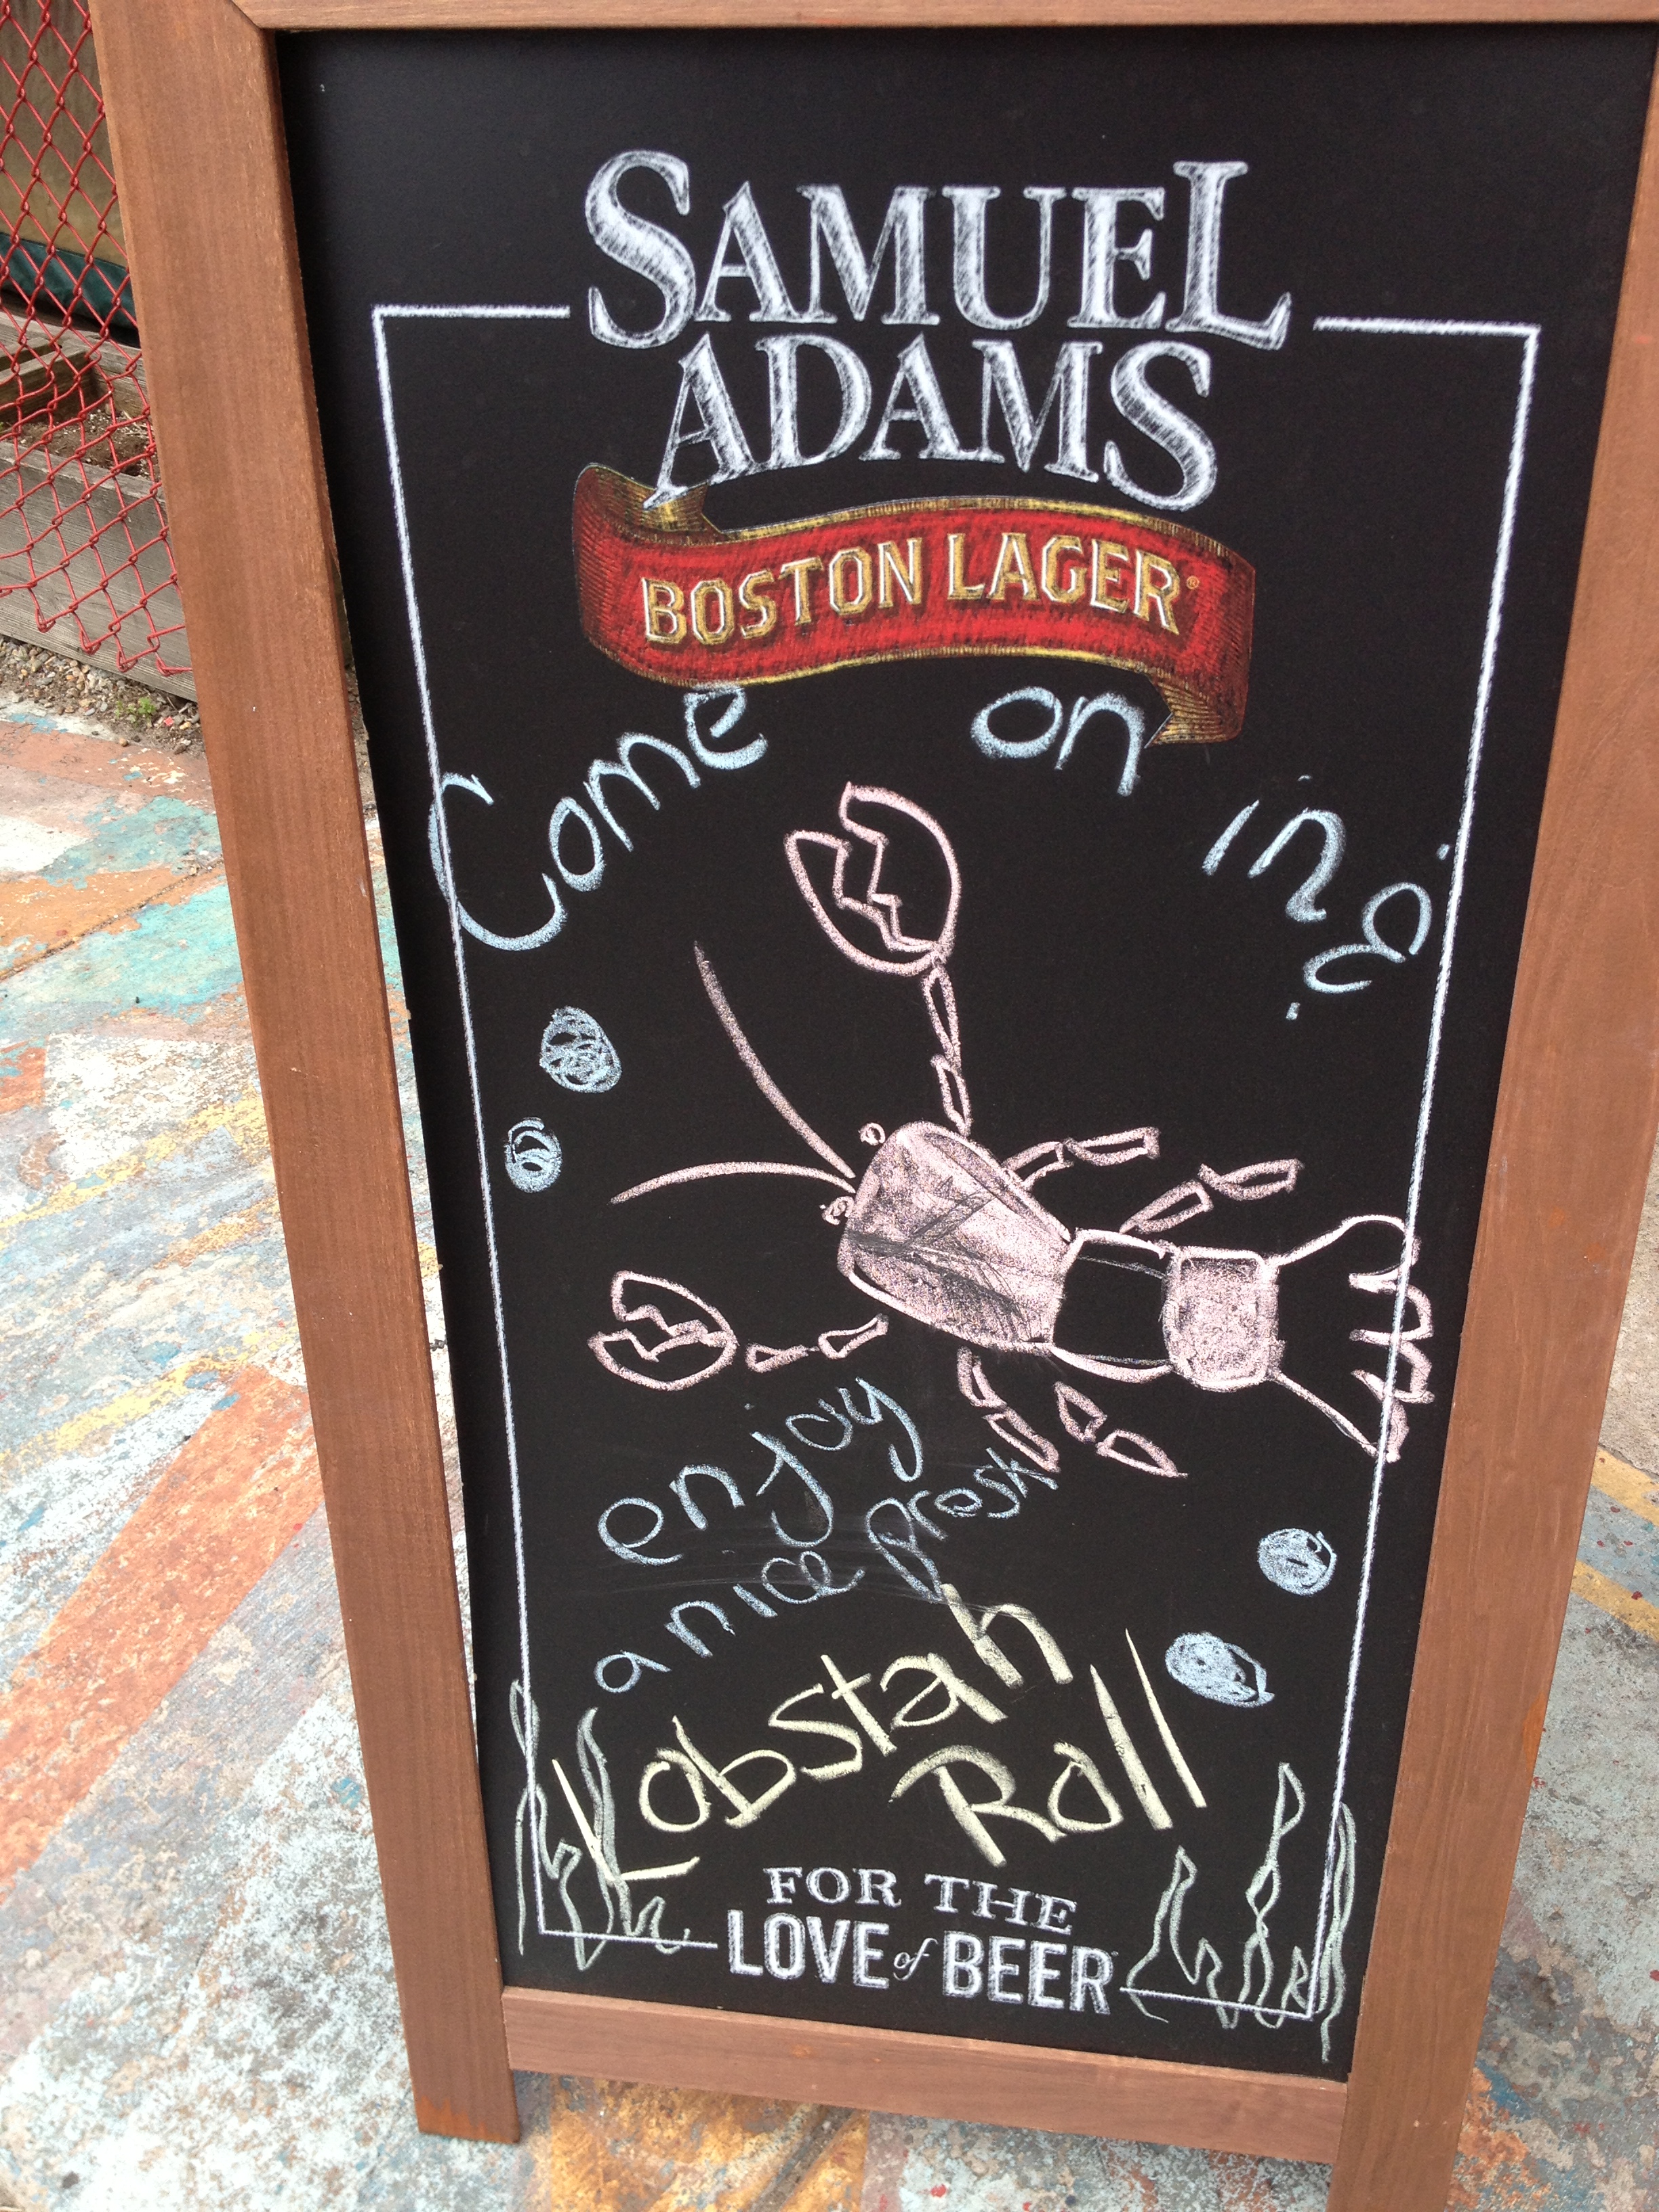 SAMUEL
ADAMS
BOSTON LAGER®
Come on in &
enjoy
a nice fresh
Lobstah
Roll
FOR THE
LOVE of BEER